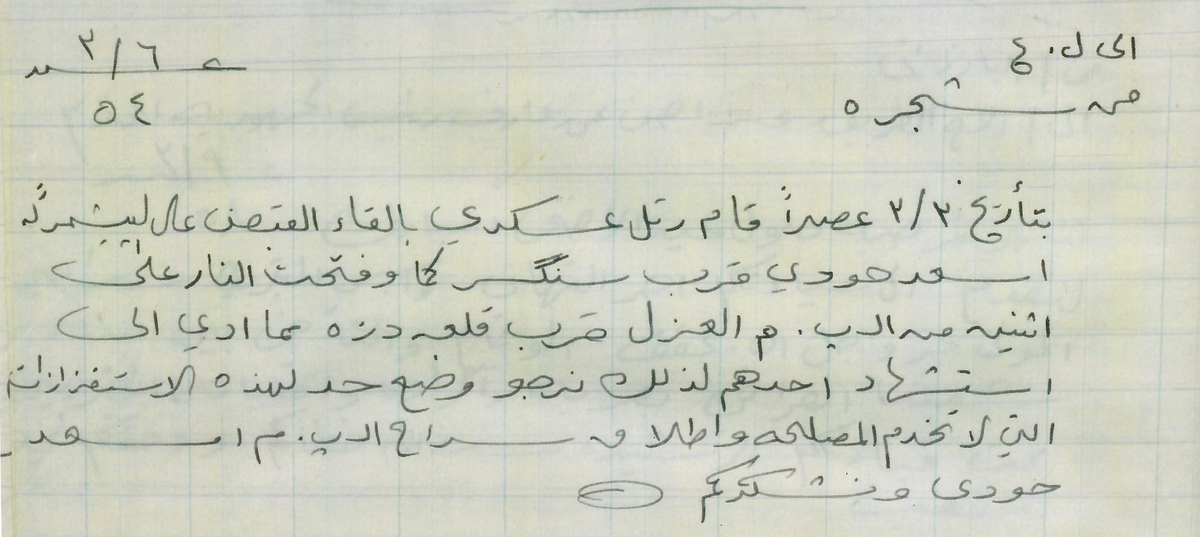 الى ل. ع
من شجره ٥
٣/٦
٥٤
بتأريخ ٣/٣ عصراً قام رتل عسكري بالقاء القبض عال بيشمرگه
اسعد حودي قرب سنگسر كما وفتحت النار على
اثنين من الب. م العزل قرب قلعه دزه مما ادي الى
استشهاد احدهم لذلك نرجو وضع حد لهذه الاستفزازات
التي لا تخدم المصلحه واطلاق سراح الب. م اسعد
حودى ونشكركم